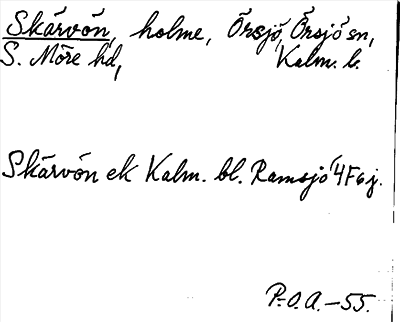 Skärvön, holme, Örsjö, Örsjö sn,
S. Möre hd, Kalm. l.
Skärvön ek Kalm. bl. Ramsjö 4F6j.
P.-O.A.-55.